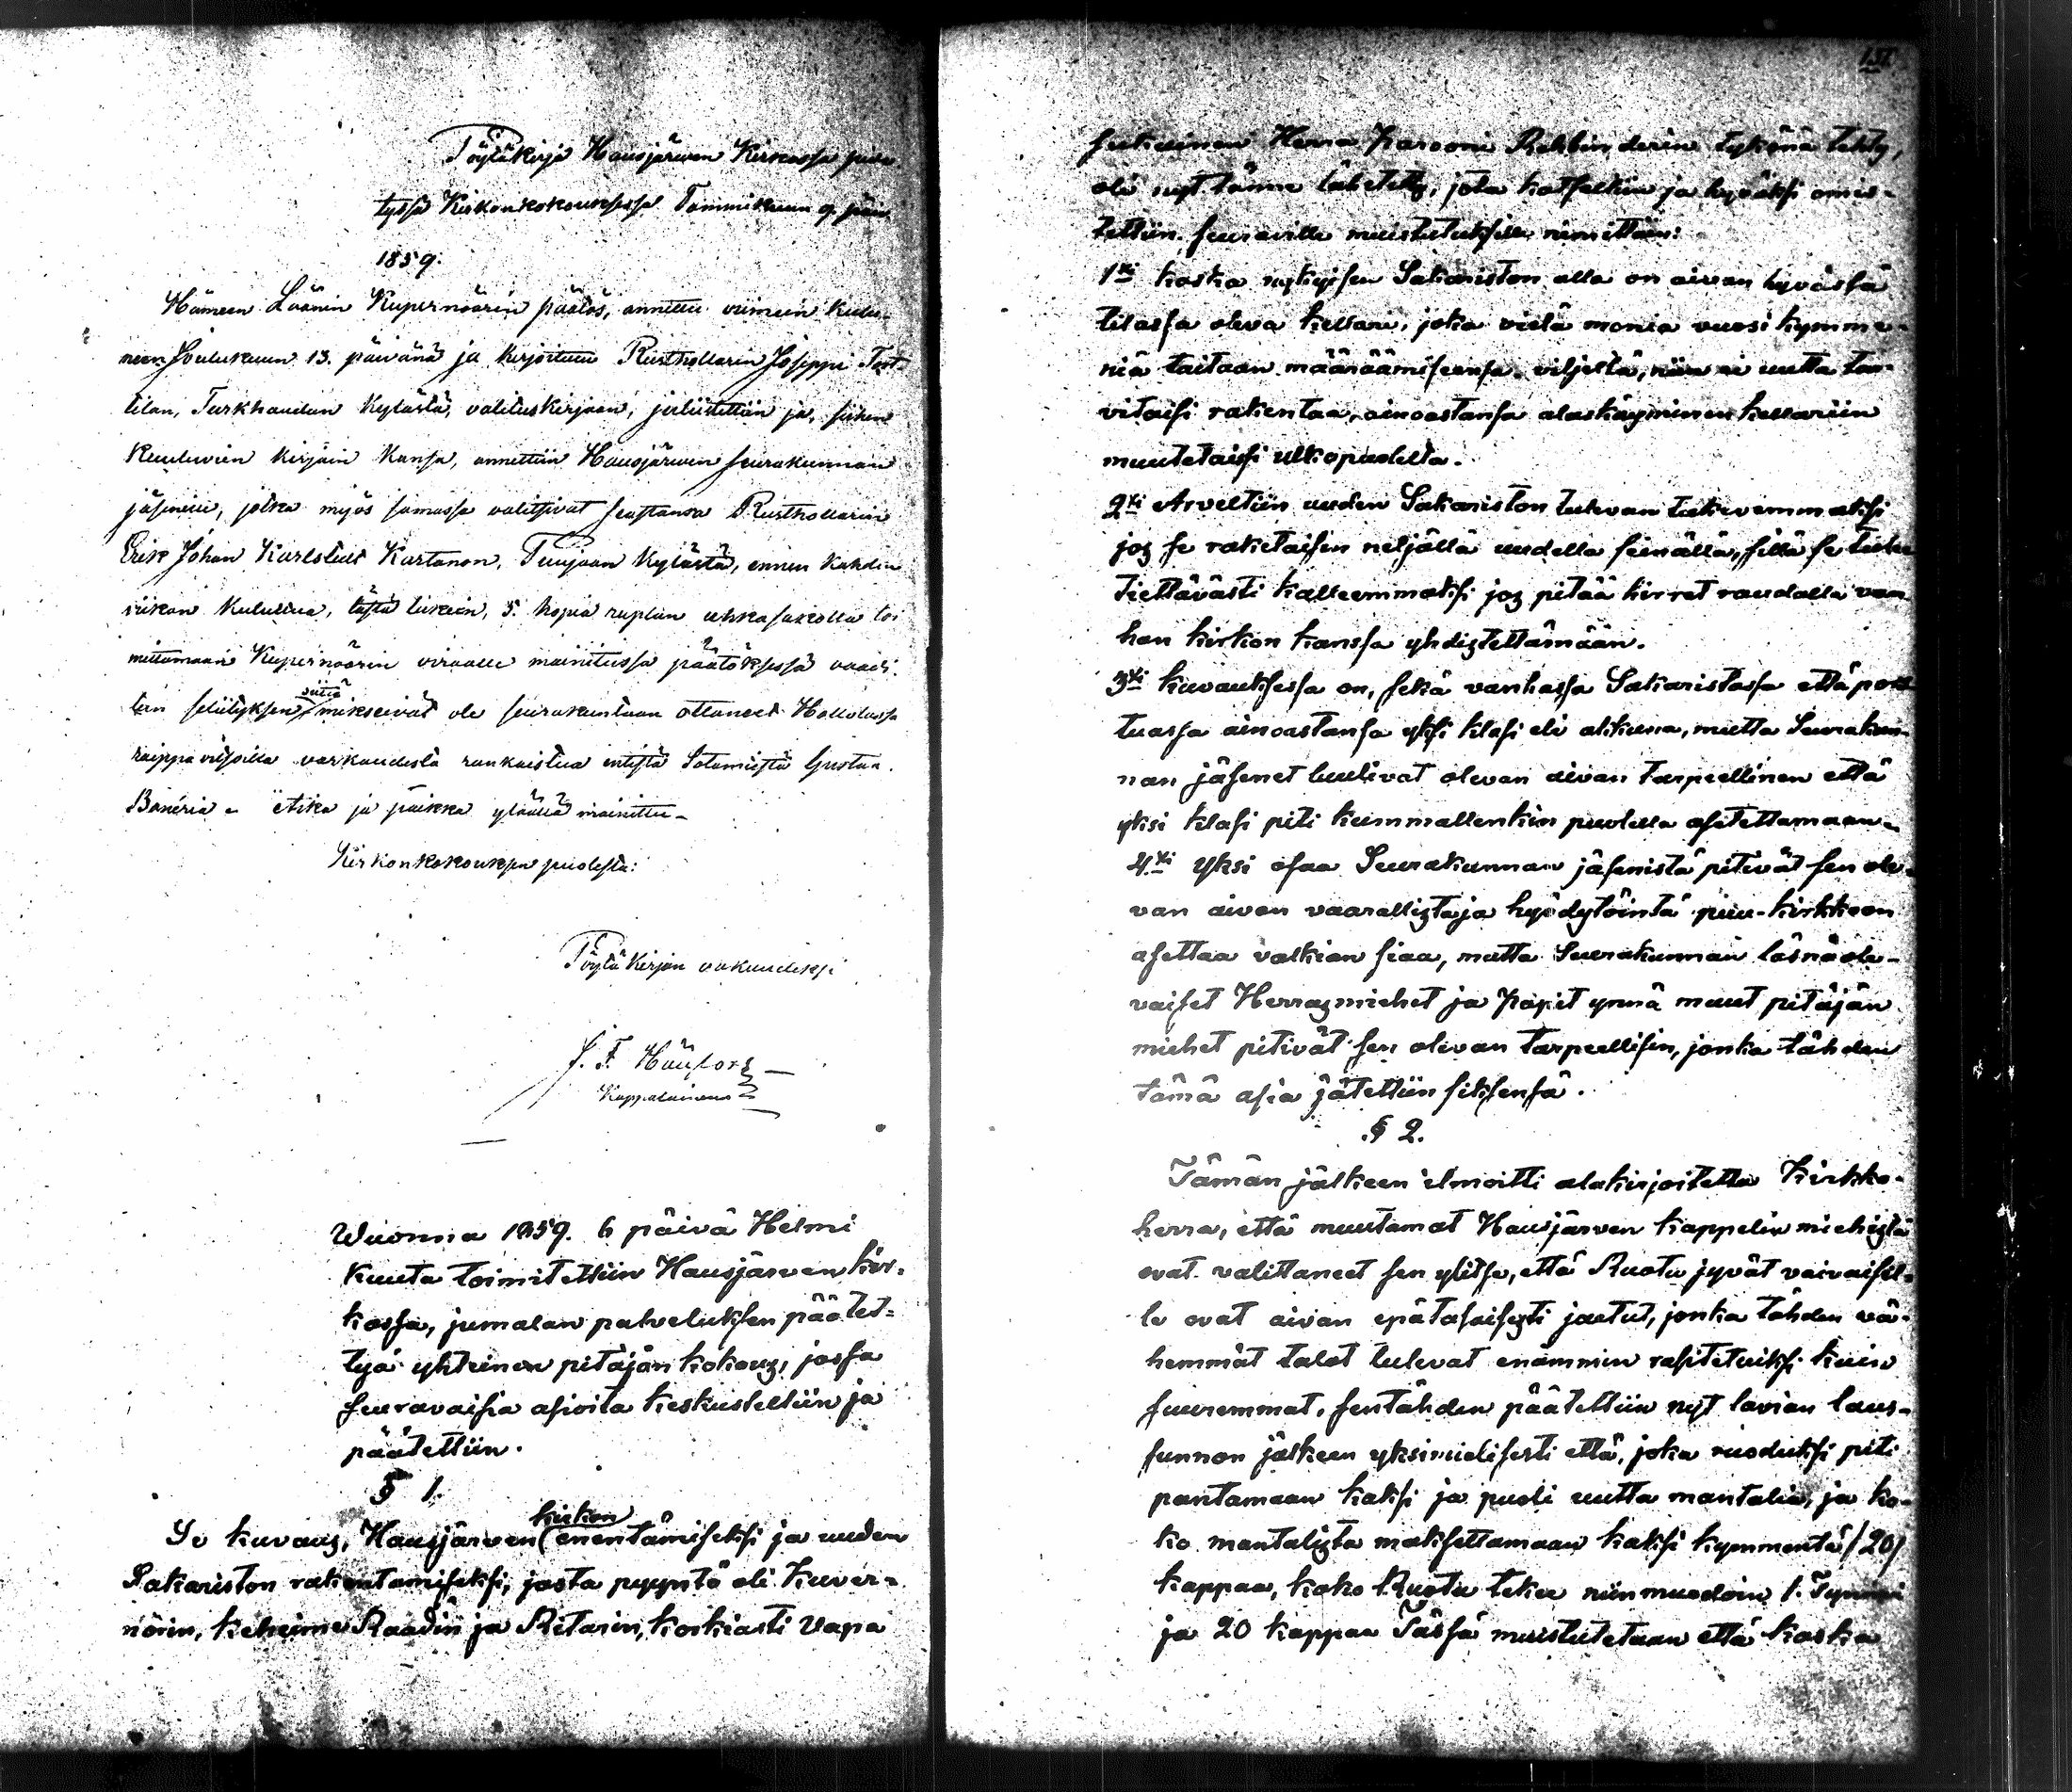 Pöytäkirja Hausjärwen Kirkossa pide-
tyssä Kirkonkokouksessa Tammikuun 9. päiv.
1859.
Hämeen Läänin Kupernöörin päätös, annettu viimein kulu-
neen Joulukuun 13. päivänä ja kirjoitettu Rusthollarin Joseppi Tort-
tilan, Turkhaudan Kylästä, valituskirjaan, julistettiin ja, siihen
kuuluvien kirjain kansa, annettiin Hausjärwen seurakunnan
jäsenille, jotka myös samassa valitsivat seastansa Rusthollarin
Erik Johan Karlstedt Kartanon, Puujaan Kylästä, ennen kahden
viikon kuluttua, tästä lukein, 5. hopia ruplan uhkasakolla toi
mittamaan Kupernöörin viraalle mainitussa päätöksessä vaadi-
tun selityksen siitä mikseivät ole seurakuntaan ottaneet Hollolassa
raippa vitsoilla varkaudesta rankaistua entistä Sotamiestä Gustaa.
Banéria. Aika ja paikka ylöällä mainittu.
Kirkonkokouksen puolesta:
Pöytäkirjan vakuudeksi
J. F. Häufors
Kappalainen
Wuonna 1859. 6 päivä Helmi
kuuta toimitettiin Hausjärven kir-
kossa, jumalan palveluksen päätet-
tyä yhteinen pitäjän kokous, jossa
seuravaisia asioita keskusteltiin ja
päätettiin.
§ 1.
Se kuvaus, Hausjärven kirkon enentämiseksi ja uuden
Sakariston rakentamiseksi, josta pyyntö oli Kuver-
nörin, Keheime Raadin ja Ritarin, korkiasti Vapa
151.
sukuinen Herra Parooni Rehbinderin tykönä tehty,
oli nyt tänne lähetetty, jota katseltiin ja hyväksi omis-
tettiin seuraville muistutuksille nimittäin:
1ksi koska nykyisen Sakariston alla on aivan hyvässä
tilassa oleva kellari, joka vielä monia vuosi kymme-
niä taitaan määräämiseensä viljellä, niin ei uutta tar-
vitaisi rakentaa, ainoastansa alaskäyminen kellariin
muutetaisi ulkopuolelta.
2ksi Arveltiin uuden Sakariston tulevan tukevemmaksi
jos se raketaisiin neljällä uudella seinällä, sillä se tulee
tiettävästi kalleemmaksi jos pitää hirret raudalla van
han kirkon kanssa yhdistettämään.
3ksi kuvauksessa on, sekä vanhassa Sakaristossa että por-
tuassa ainoastansa yksi klasi eli akkuna, mutta Seurakun-
nan jäsenet luulivat olevan aivan tarpeellinen että
yksi klasi piti kummallenkin puolella asetettamaan.
4ksi yksi osaa Seurakunnan jäsenistä pitivät sen ole-
van aivan vaarallista ja hyödytöintä puu-kirkkoon
asettaa valkian siaa, mutta Seurakunnan läsnäole-
vaiset Herrasmiehet ja Papit ynnä muut pitäjän
miehet pitivät sen olevan tarpeellisen, jonka tähden
tämä asia jätettiin siksensä.
§ 2.
Tämän jälkeen ilmoitti alakirjoitettu Kirkko-
herra, että muutamat Hausjärven kappelin miehistä
ovat valittaneet sen ylitse, että Ruotu jyvät vaivaisil-
le ovat aivan epätasaisesti jaetut, jonka tähden vä-
hemmät talot tulevat enämmin rasitetuiksi kuin
suuremmat, sentähden päätettiin nyt lavian laus-
sunnon jälkeen yksimielisesti että, joka ruoduksi piti
pantamaan kaksi ja puoli uutta mantalia, ja ko-
ko mantalista maksettamaan kaksi kymmentä /20/
kappaa, koko Ruotu tekee niinmuodoin 1. Tynnöri
ja 20 kappaa Tässä muistutetaan että koska